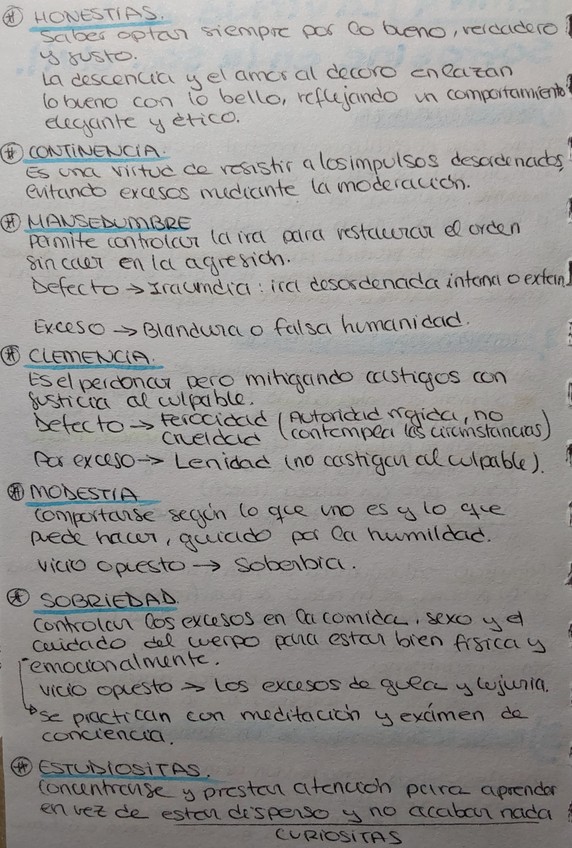 HONESTIAS.
Saber optar siempre por lo bueno, verdadero
y justo.
La descencia y el amor al decoro enlazan
lo bueno con lo bello, reflejando un comportamiento
elegante y ético.
CONTINENCIA.
Es una virtud de resistir a los impulsos desordenados,
evitando excesos mediante la moderación.
MANSEDUMBRE
Permite controlar la ira para restaurar el orden
sin caer en la agresión.
Defecto → Iracundia: ira desordenada interna o extern
Exceso → Blandura o falsa humanidad.
CLEMENCIA.
Es el perdonar pero mitigando castigos con
justicia al culpable.
Defecto → Ferocidad (Autoridad rígida, no
crueldad contempla las circunstancias)
Por exceso → Lenidad (no castigar al culpable).
MODESTIA
Comportarse según lo que uno es y lo que
puede hacer, guiado por la humildad.
Vicio opuesto → Soberbia.
SOBRIEDAD
Controlar los excesos en la comida, sexo y el
cuidado del cuerpo para estar bien física y
emocionalmente.
Vicio opuesto → Los excesos de gula y lujuria.
Se practican con meditación y exámen de
conciencia.
ESTUDIOSITAS.
Concentrarse y prestar atención para aprender
en vez de estar disperso y no acabar nada
CURIOSITAS